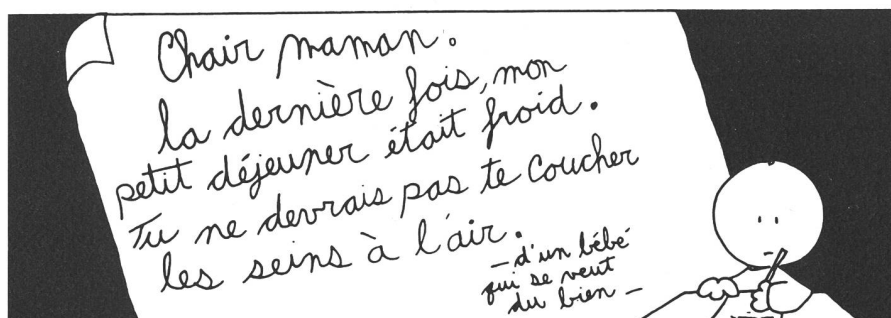 Chair maman.
la dernière fois, mon
petit déjeuner était froid.
Tu ne devrais pas te coucher
les seins à l'air.
– d'un bébé
qui se veut
du bien –